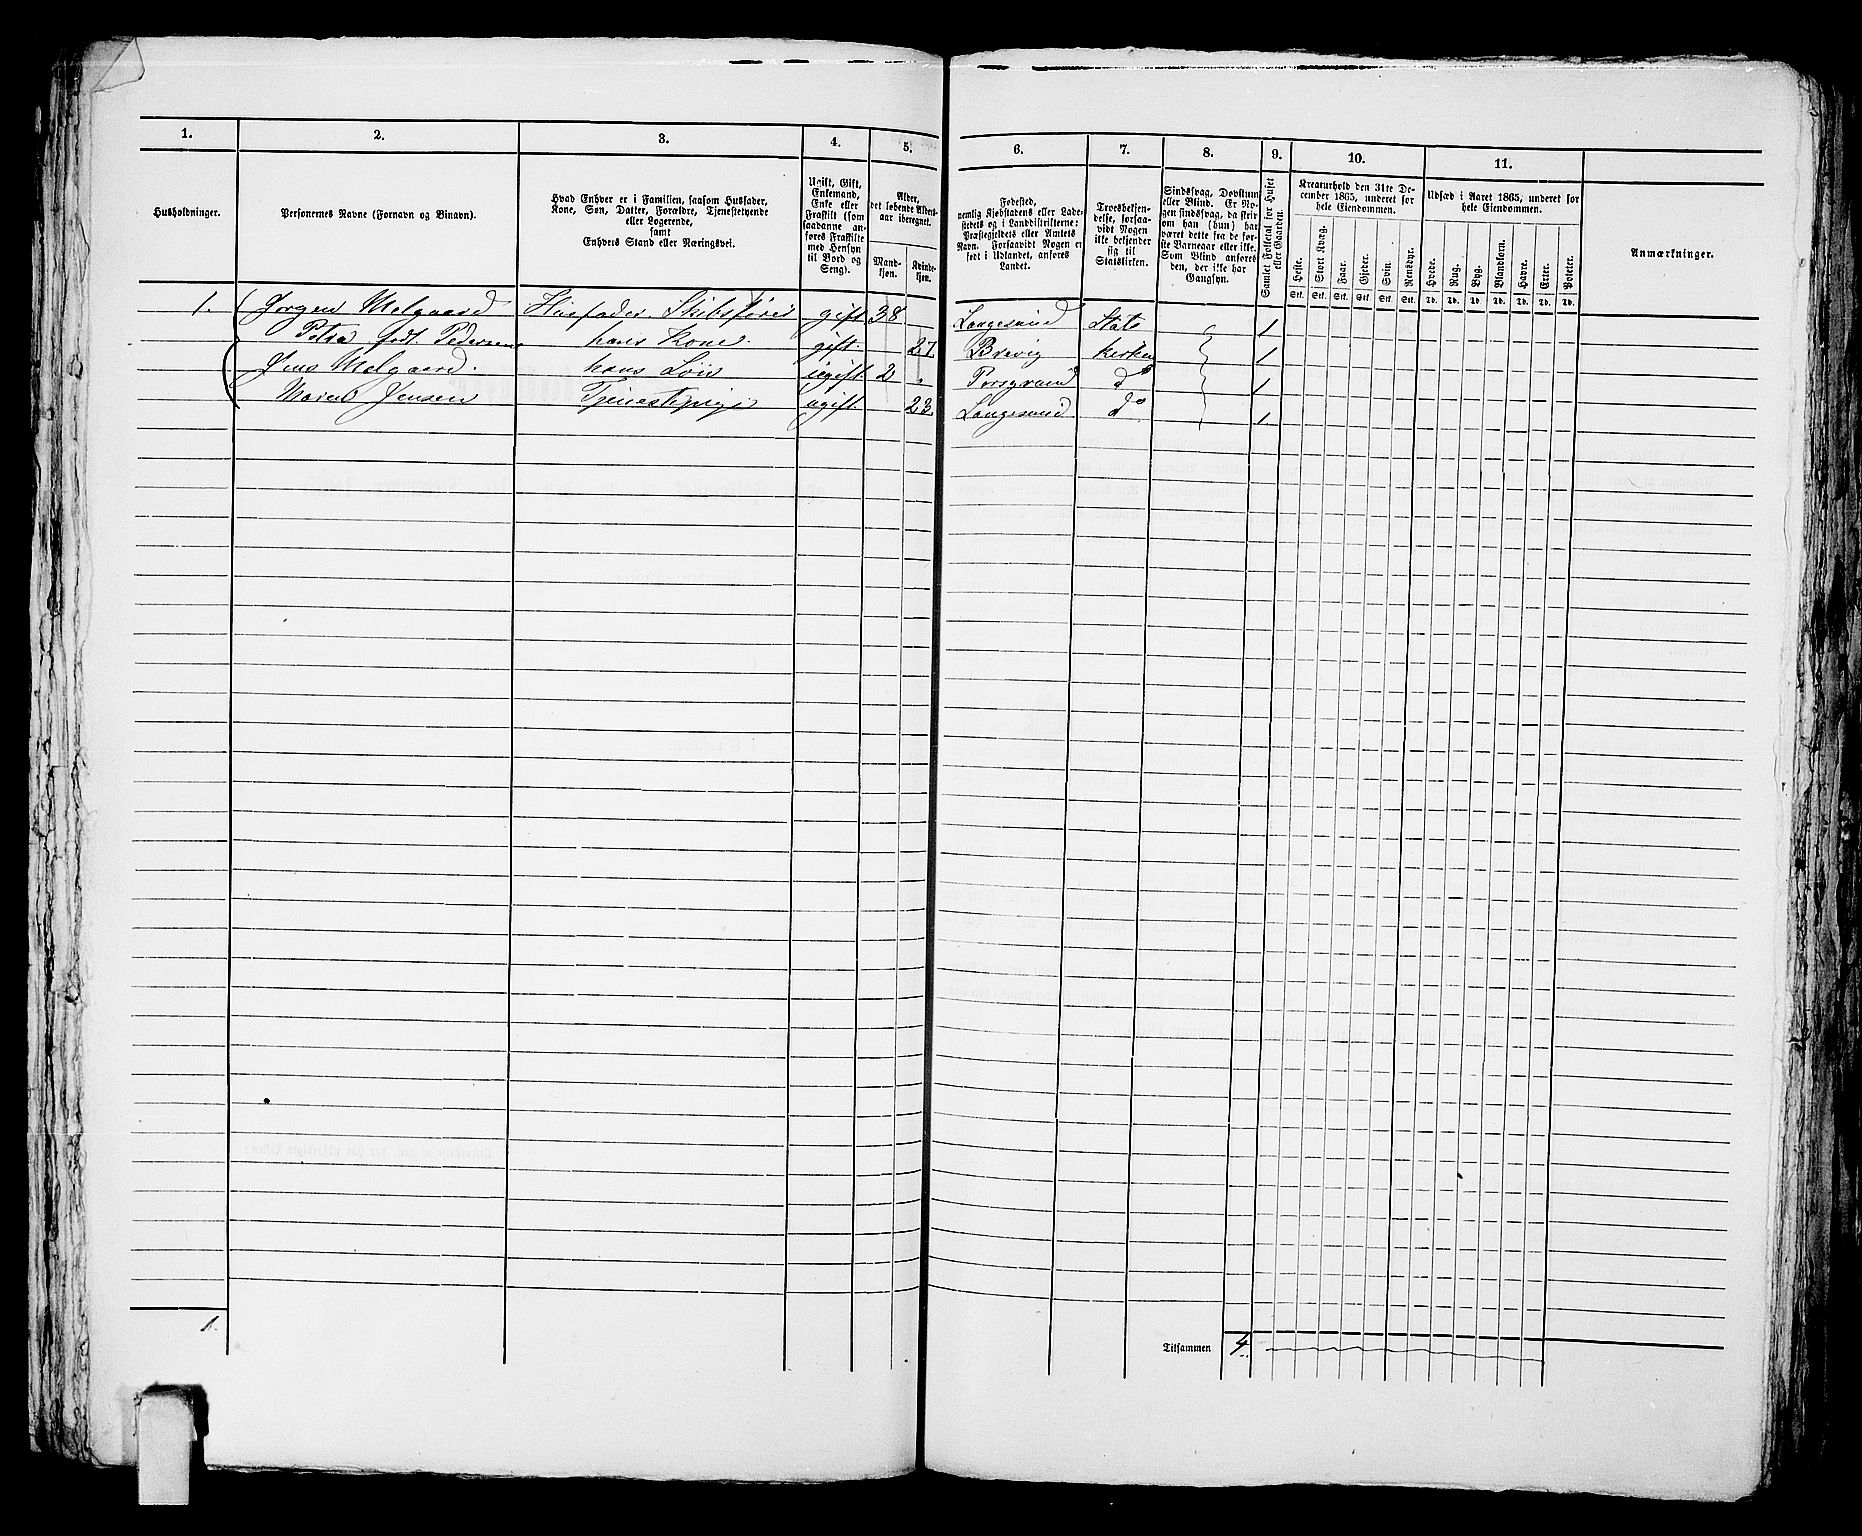 1. 2. 3. 4. 5. 6. 7. 8. 9. 10. 11.
Husholdninger.
Personernes Navne (Fornavn og Binavn).
Hvad Enhver er i Familien, saasom Husfader,
Kone, Søn, Datter, Forældre, Tjenestetyende
eller Logerende,
samt
Enhvers Stand eller Næringsvei.
Ugift, Gift,
Enkemand,
Enke eller
Fraskilt (som
saadanne an-
føres Fraskilte
med Hensyn
til Bord og
Seng).
Alder,
det løbende Alders-
aar iberegnet.
Mand-
kjøn.
Kvinde-
kjøn.
Fødested,
nemlig Kjøbstadens eller Lade-
stedets og i Landdistrikterne:
Præstegjeldets eller Amtets
Navn. Forsaavidt Nogen er
født i Udlandet, anføres
Landet.
Troesbekjen-
delse, forsaa-
vidt Nogen
ikke bekjender
sig til
Statskirken.
Sindssvag, Døvstum
eller Blind. Er No-
gen sindssvag, da skriv
om han (hun) har
været dette fra de før-
ste Barneaar eller ikke.
Som Blind anføres
den, der ikke har
Gangsyn.
Samlet Folketal for Huset
eller Gaarden.
Kreaturhold den 31te De-
cember 1865, underet for
hele Eiendommen.
Heste. Stort Kvæg. Faar. Gjeder. Svin. Rensdyr.
Stk. Stk. Stk. Stk. Stk. Stk.
Udsæd i Aaret 1865, underet for
hele Eiendommen.
Hvede. Rug. Byg. Blandkorn. Havre. Erter. Poteter.
Td. Td. Td. Td. Td. Td. Td.
Anmærkninger.
1. Jørgen Melgaard Husfader. Skibsfører gift 38 Langesund Stats 1
Petra Godt. Pedersen hans Kone. gift. 27. Brevig kirken 1
Jens Melgaard. hans Søn ugift 2 Porsgrund do 1
Maren Jensen Tjenestepige ugift. 23. Langesund do 1.
1. Tilsammen 4